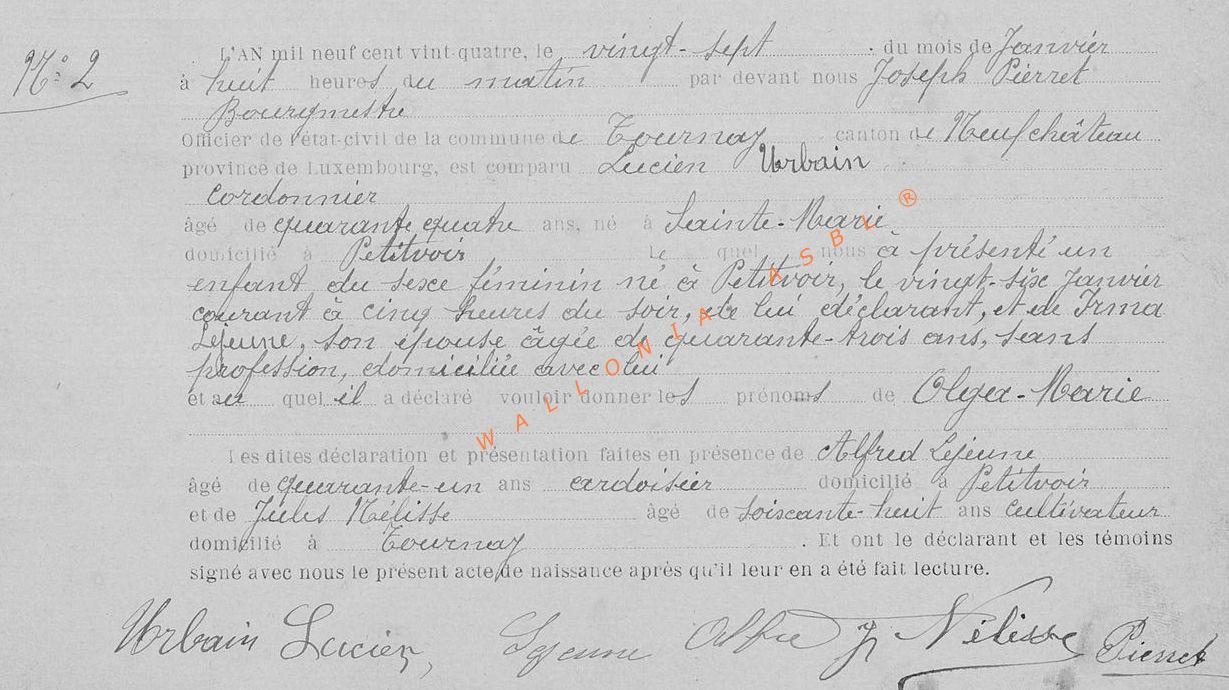 N° 2
L'AN mil neuf cent vint-quatre, le vingt-sept . du mois de Janvier
à huit heures du matin par devant nous Joseph Pierret
Bourgmestre
Officier de l'état-civil de la commune de Tournay canton de Neufchâteau
province de Luxembourg, est comparu Lucien Urbain
cordonnier
âgé de quarante quatre ans, né à Sainte-Marie
domicilié à Petitvoir Le quel nous a présenté un
enfant du sexe féminin né à Petitvoir, le vingt-six Janvier
courant à cinq heures du soir, de lui déclarant, et de Irma
Lejeune, son épouse âgée de quarante-trois ans, sans
profession, domiciliée avec lui
et au quel il a déclaré vouloir donner les prénoms de Olga-Marie
Les dites déclaration et présentation faites en présence de Alfred Lejeune
âgé de quarante-un ans ardoisier domicilié à Petitvoir
et de Jules Nélisse âgé de soixante-huit ans cultivateur
domicilié à Tournay . Et ont le déclarant et les témoins
signé avec nous le présent acte de naissance après qu'il leur en a été fait lecture.
Urbain Lucien, Lejeune Alfre J Nélisse Pierret
WALLONIA ASBL ®